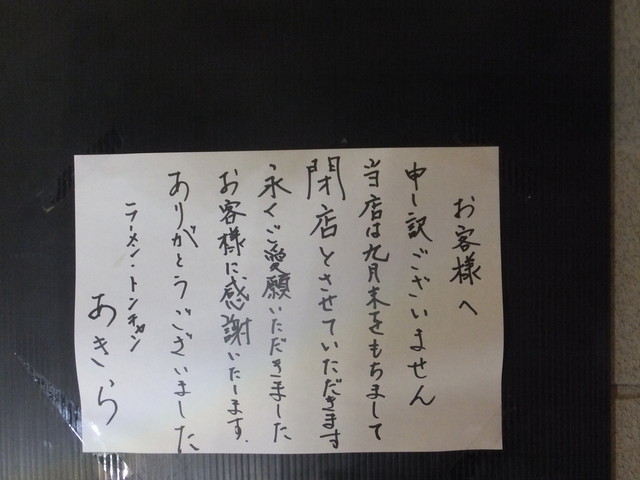 お客様へ
申し訳ございません
当店は九月末をもちまして
閉店とさせていただきます
永くご愛願いただきました
お客様に感謝いたします.
ありがとうございました
ラーメン・トンチャン
あきら